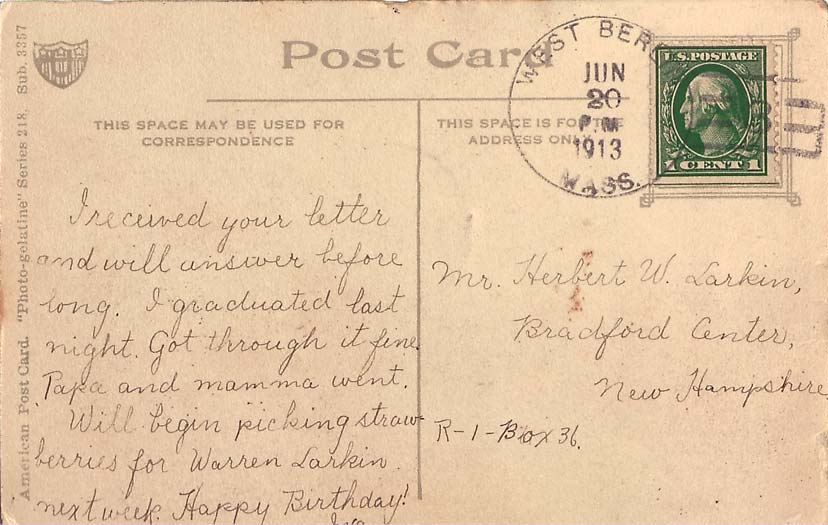 American Post Card. "Photo-gelatine" Series 218. Sub. 3357
Post Card
THIS SPACE MAY BE USED FOR
CORRESPONDENCE
THIS SPACE IS FOR THE
ADDRESS ONLY
WEST BER
JUN
20
P.M
1913
MASS.
U.S. POSTAGE
1 CENT 1
I received your letter
and will answer before
long. I graduated last
night. Got through it fine.
Papa and mamma went.
Will begin picking straw-
berries for Warren Larkin
next week. Happy Birthday!
Mr. Herbert W. Larkin,
Bradford Center,
New Hampshire
R-1-Box 36.